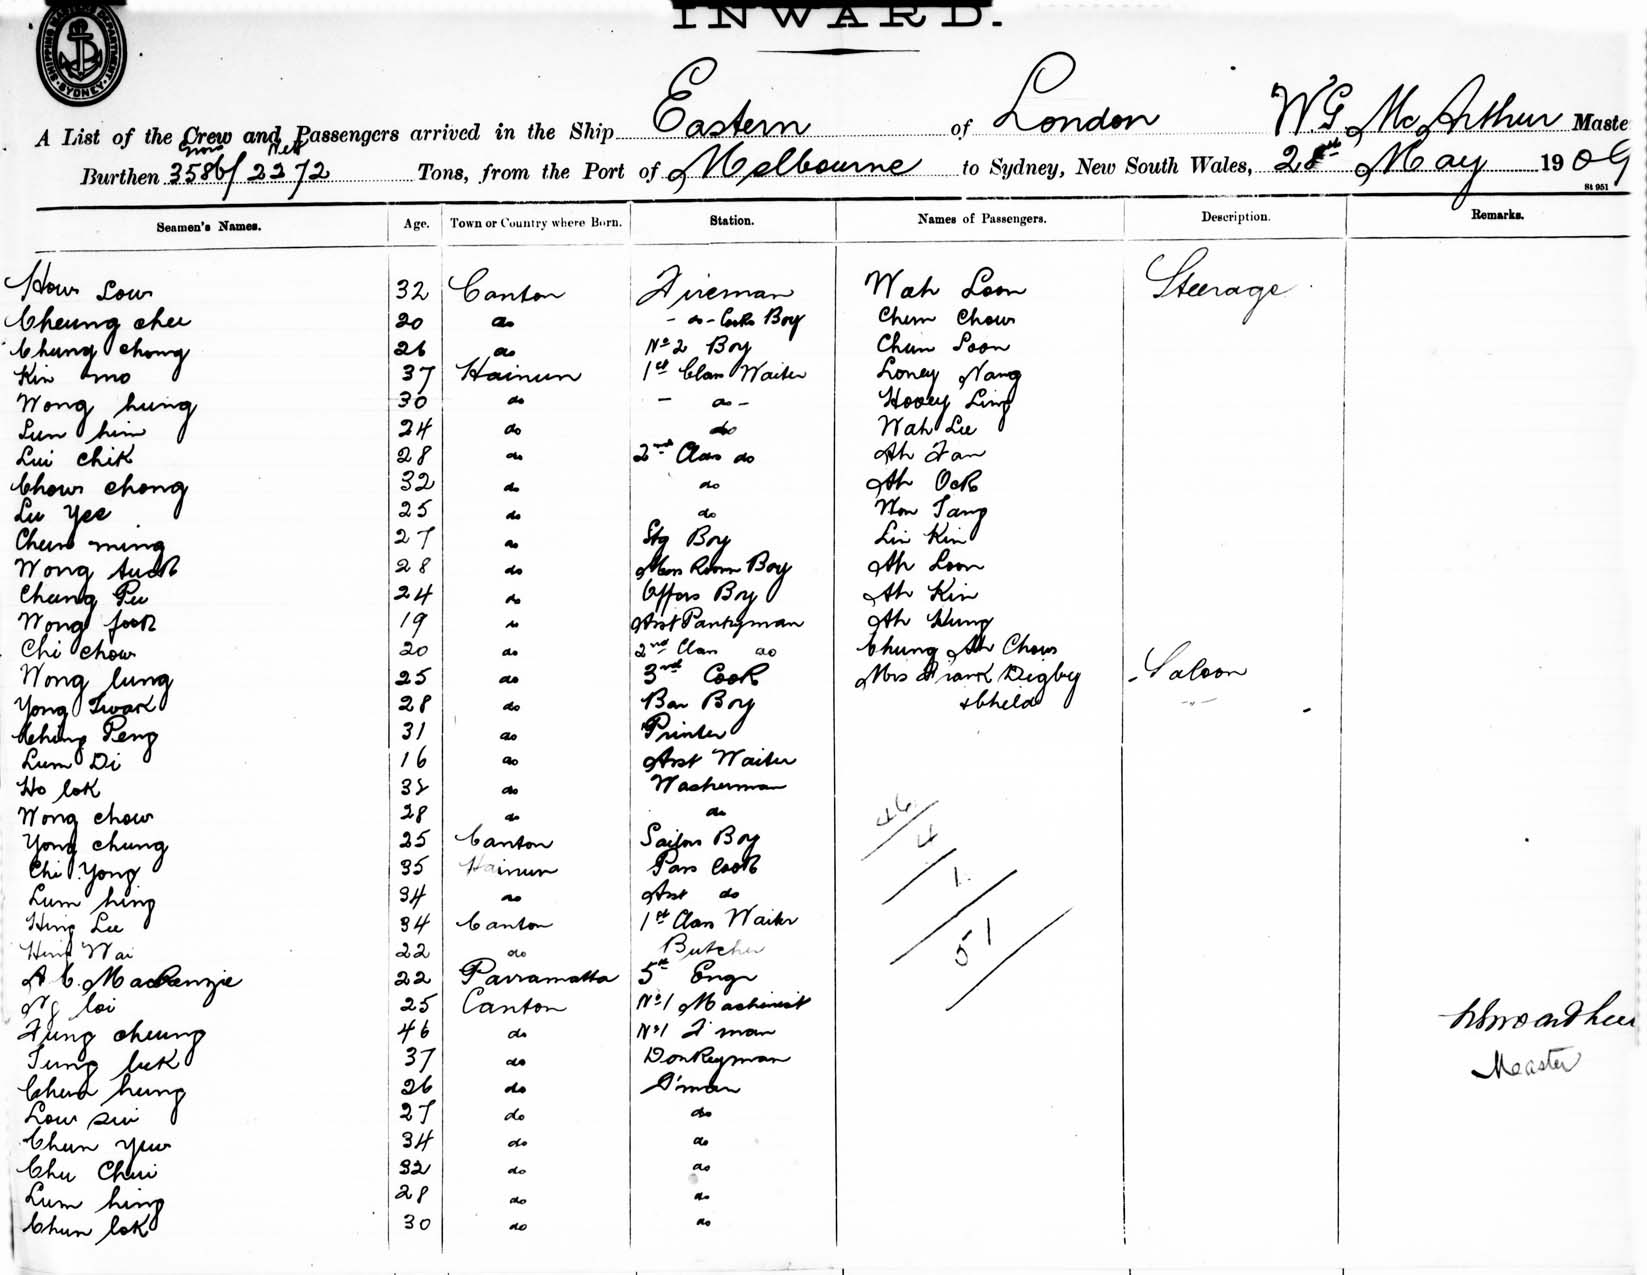 SHIPPING MASTER'S DEPARTMENT · SYDNEY ·
INWARD.
A List of the Crew and Passengers arrived in the Ship Eastern of London W.G. McArthur Maste
Gross Nett
Burthen 3586/2272 Tons, from the Port of Melbourne to Sydney, New South Wales, 28th May 1909
St 951
Seamen's Names. Age. Town or Country where Born. Station. Names of Passengers. Description. Remarks.
How Low 32 Canton Fireman Wah Loon Steerage
Cheung chee 20 do - do - Cooks Boy Chem Chow
Chung chong 26 do No 2 Boy Chun Soon
Kin mo 37 Hainun 1st Class Waiter Loney Nang
Wong hung 30 do - do - Hooey Ling
Lun him 24 do do Wah Lee
Lui chik 28 do 2nd Class do Ah Fan
Chow chong 32 do do Ah Ock
Lu Yee 25 do do Non Tang
Chun ming 27 do Stg Boy Lin Kin
Wong tuck 28 do Mess Room Boy Ah Loon
Chung Pu 24 do Offers Boy Ah Kin
Wong fook 19 do Asst Pantryman Ah Hung
Chi chow 20 do 2nd Class do Chung Ah Chow
Wong lung 25 do 3rd Cook Mrs Frank Digby - Saloon
Yong Twak 28 do Bar Boy + Child - " -
Ching Peng 31 do Printer
Lum Di 16 do Asst Waiter
Ho lok 32 do Washerman
Wong chow 28 do do
Yong chung 25 Canton Sailors Boy 46
4
Chi Yong 35 Hainun Pass Cook 1.
Lum hing 34 do Asst do
Hing Lee 34 Canton 1st Class Waiter 51
Hing Wai 22 do Butcher
A C. MacKenzie 22 Parramatta 5th Engr
Ng loi 25 Canton No 1 Machinist
Fung cheung 46 do No 1 F'man
Tung luk 37 do Donkeyman Master
Chun hung 26 do F'man
Low sui 27 do do
Chun yuw 34 do do
Chu Chui 32 do do
Lum hing 28 do do
Chun lok 30 do do